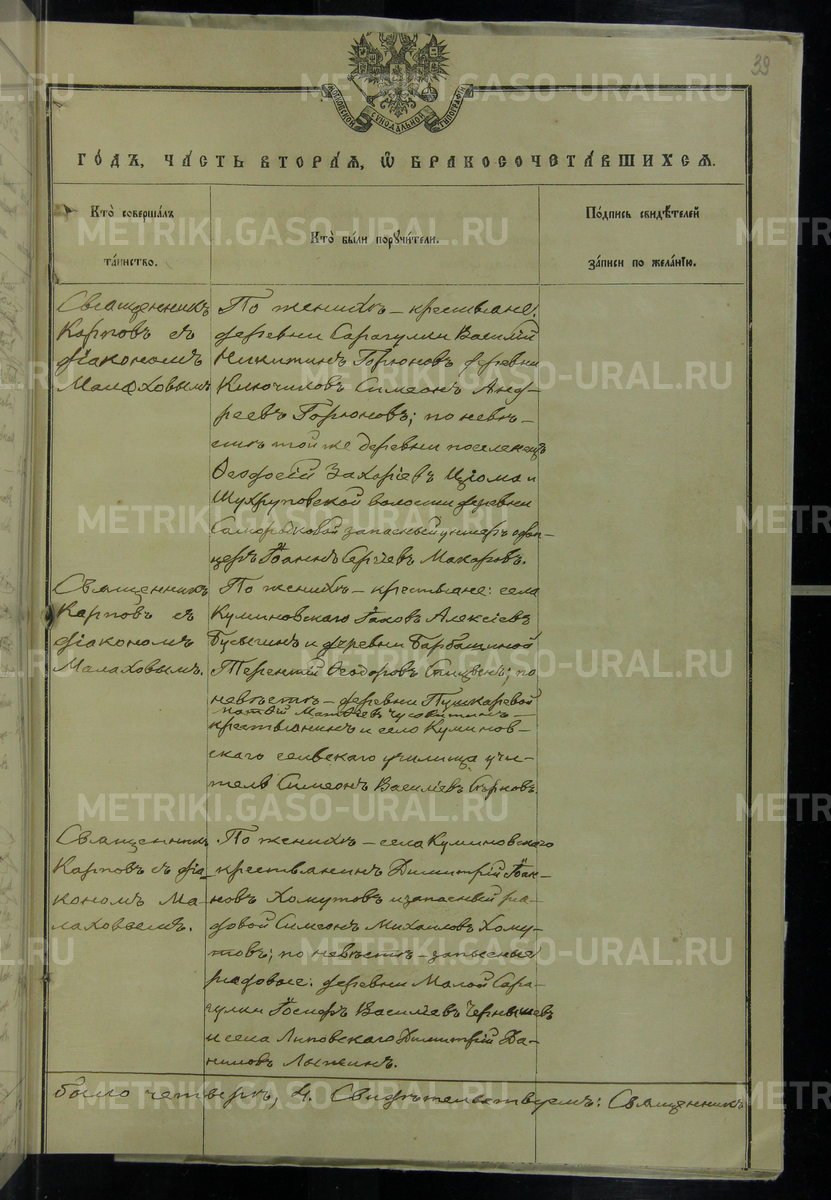 39
МОСКОВСКОЙ СѴНОДАЛЬНОЙ ТИПОГРАФІИ
ГОДЪ, ЧАСТЬ ВТОРАЯ, Ѡ БРАКОСОЧЕТАВШИХСЯ.
Кто совершалъ таинство.
Кто были поручители.
Подпись свидѣтелей записи по желанію.
Священникъ
Карповъ съ
діакономъ
Малаховымъ
По женихѣ – крестьяне:
деревни Сарагулки Василій
Никитинъ Горюновъ, деревни
Ключиковъ Симеонъ Анд-
реевъ Горюновъ; по невѣ-
стѣ той же деревни поселенецъ
Ѳеодосій Захаріевъ и
деревни
запасный унтеръ-офи-
церъ Іоаннъ Сергіевъ Макаровъ.
Священникъ
Карповъ съ
діакономъ
Малаховымъ.
По женихѣ – крестьяне: села
Куминовскаго Іаковъ Алексіевъ
Бусыгинъ и деревни Барбашиной
Терентій Ѳеодоровъ по
невѣстѣ – деревни Пушкаревой
крестьянинъ и село Куминов-
скаго сельскаго училища учи-
тель Симеонъ Василіевъ
Священникъ
Карповъ съ діа-
кономъ Ма-
лаховымъ.
По женихѣ – села Куминовскаго
крестьянинъ Димитрій Іоан-
новъ Хомутовъ и запасный ря-
довой Симеонъ Михаиловъ Хому-
товъ; по невѣстѣ – запасные
рядовые: деревни Малой Сара-
гулки Іосифъ Василіевъ Чернышевъ
и села Липовскаго Димитрій Да-
ниловъ Лыжинъ.
было четверо, 4. Свидѣтельствуемъ: Священникъ
METRIKI.GASO-URAL.RU